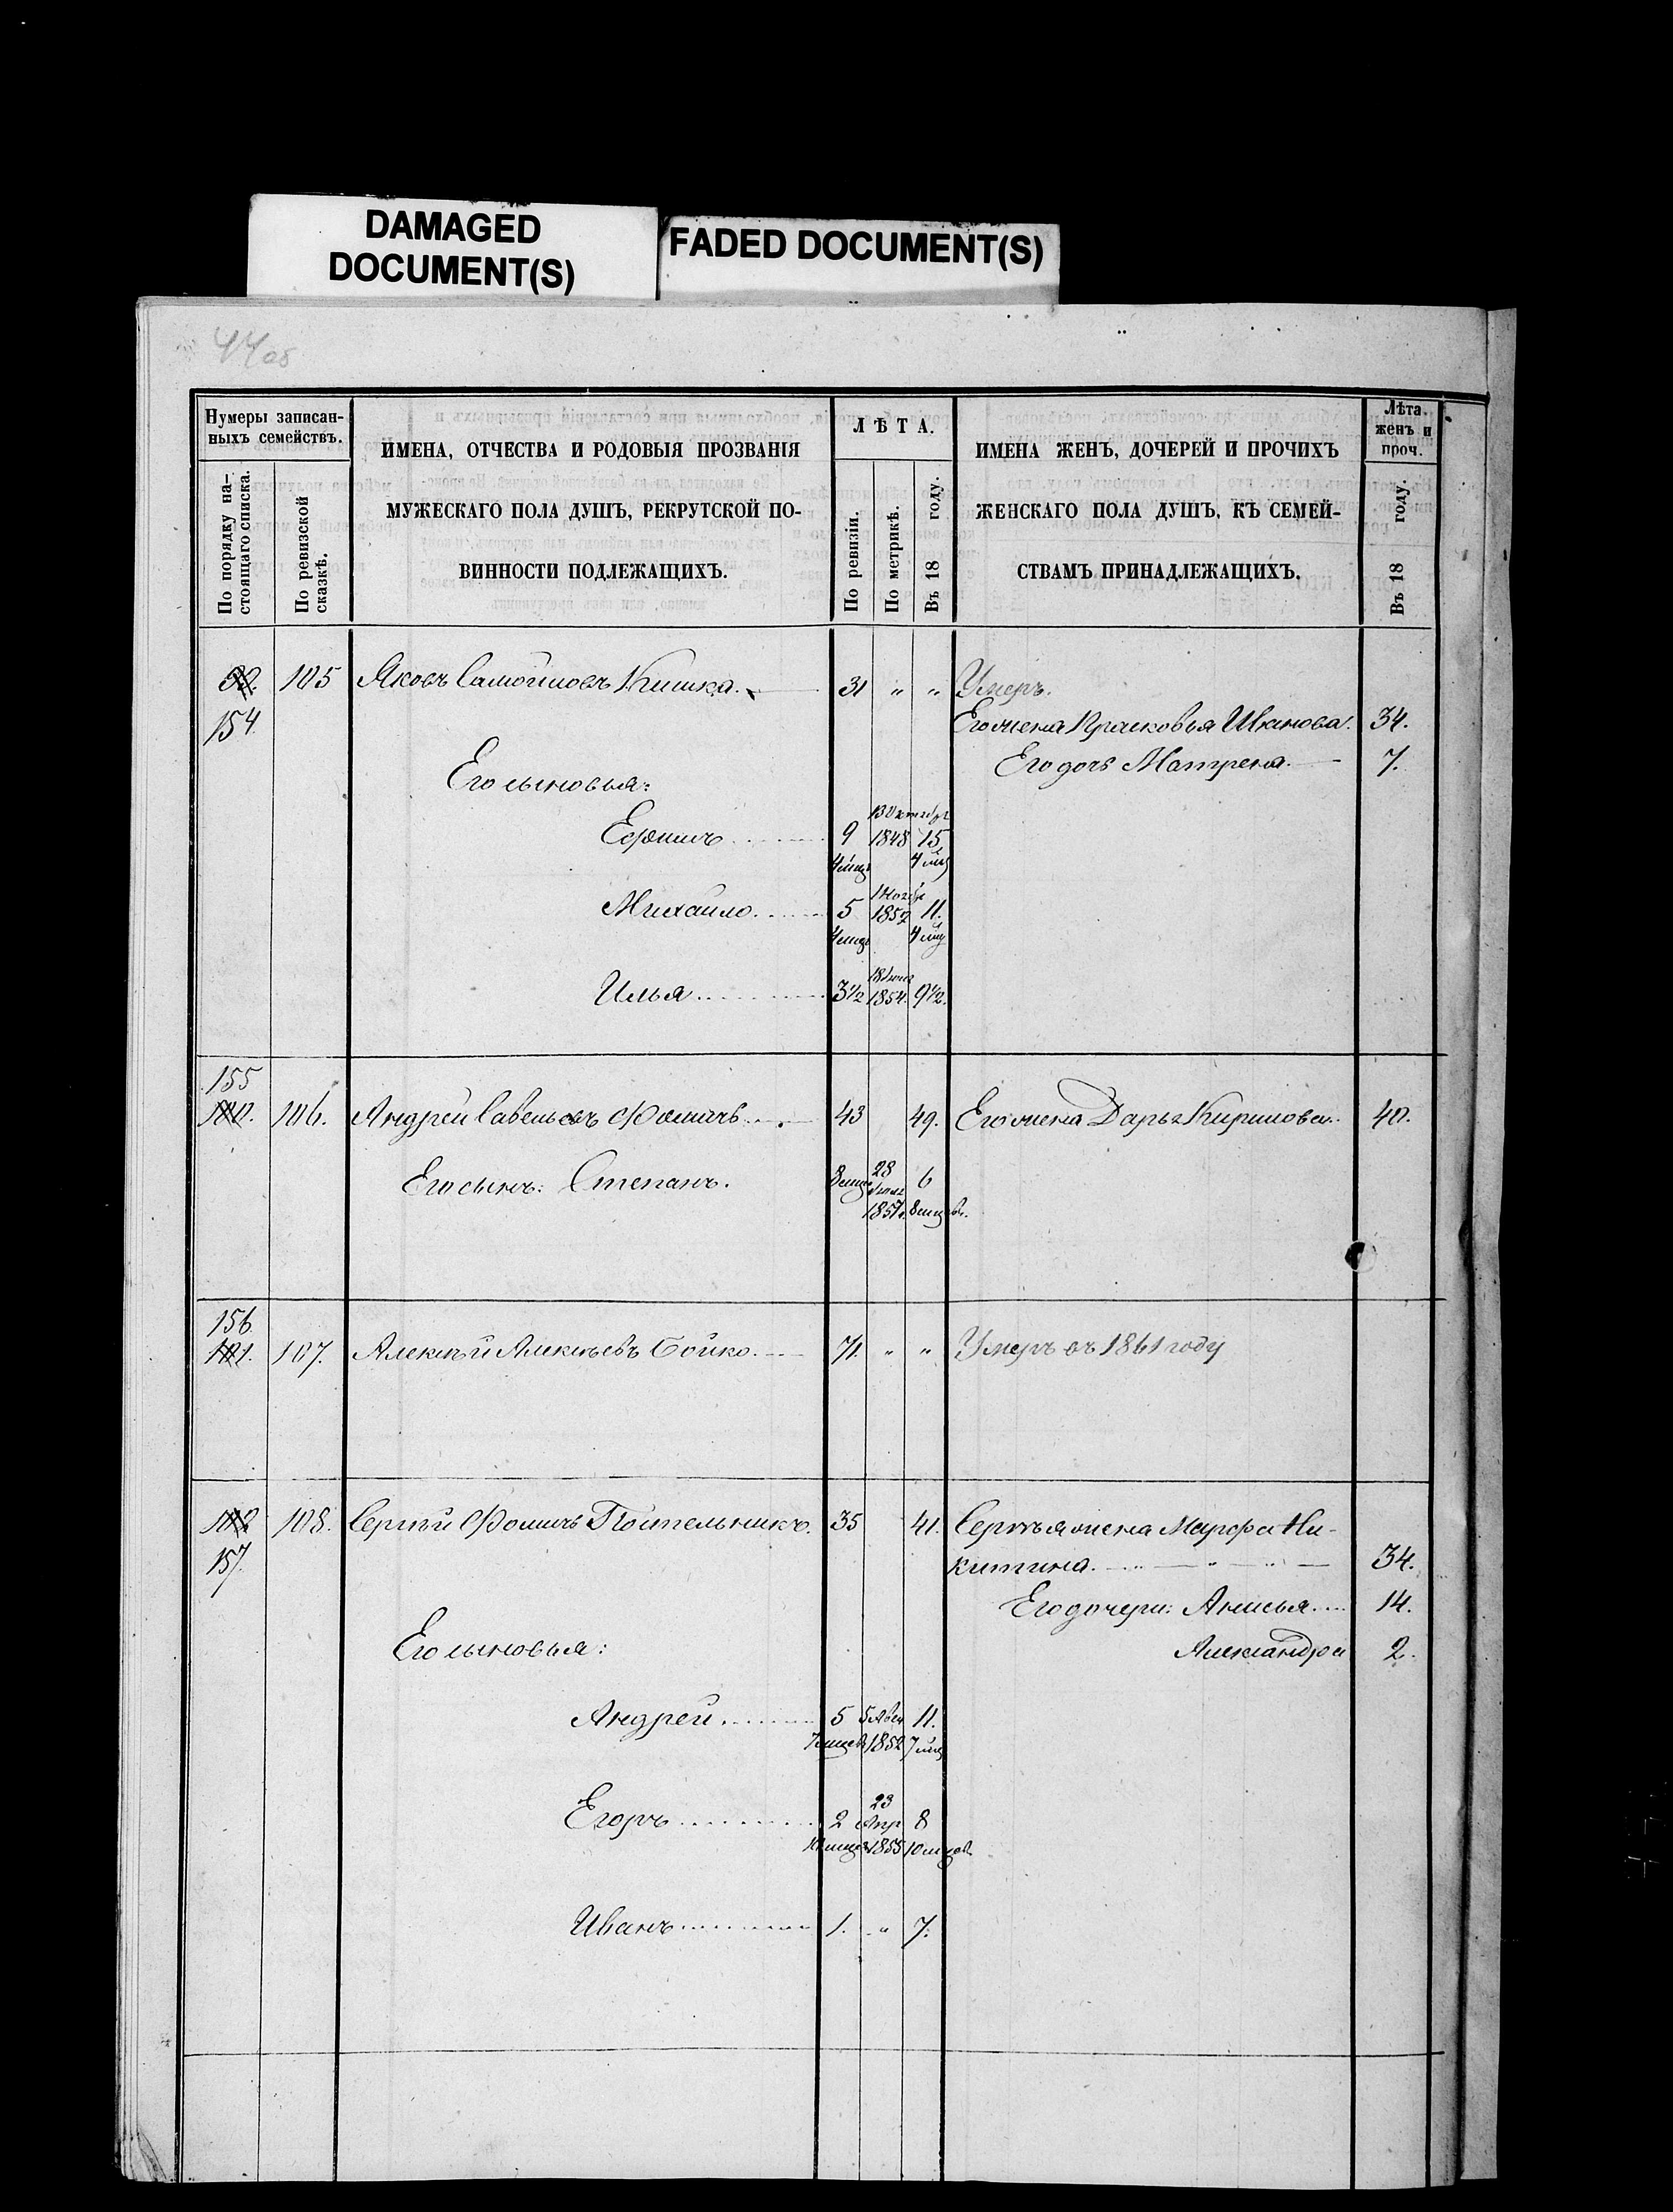 DAMAGED
DOCUMENT(S)
FADED DOCUMENT(S)
44 об
Нумеры записан-
ныхъ семействъ.
По порядку на-
стоящаго списка.
По ревизской
сказкѣ.
ИМЕНА, ОТЧЕСТВА И РОДОВЫЯ ПРОЗВАНІЯ
МУЖЕСКАГО ПОЛА ДУШЪ, РЕКРУТСКОЙ ПО-
ВИННОСТИ ПОДЛЕЖАЩИХЪ.
ЛѢТА.
По ревизіи.
По метрикѣ.
Въ 18 году.
ИМЕНА ЖЕНЪ, ДОЧЕРЕЙ И ПРОЧИХЪ
ЖЕНСКАГО ПОЛА ДУШЪ, КЪ СЕМЕЙ-
СТВАМЪ ПРИНАДЛЕЖАЩИХЪ.
Лѣта.
женъ и
проч.
Въ 18 году.
105 Яковъ Самойловъ Кишка. 31 " " Умеръ.
154 Его жена Прасковья Иванова. 34.
Его дочь Матрена. 7.
Его сыновья:
13 Октября
Ефимъ 9 1848 15
4 мца 4 мц
1 Ноябр
Михайло. 5 1852 11.
4 мца 4 мц
18 Іюля
Илья 3½ 1854. 9½.
155
100. 106. Андрей Савельевъ Фомичъ 43 49. Его жена Дарья Кирилова. 40.
Его сынъ: Степанъ. 8 мцев 28 Іюля 6
1857. 8 мцевъ.
156.
101. 107. Алексѣй Алексѣевъ Бойко. 71. " " Умеръ въ 1861 году
102 108. Сергѣй Фомичъ Постельникъ. 35 41. Сергѣя жена Марфа Ни-
157. китина. 34.
Его дочери: Анисья 14.
Его сыновья: Александра 2.
Андрей 5 5 Авг 11.
7 мцев 1852 7 мц
23
Егоръ 2 Апр 8
10 мцев 1855 10 мцов.
Иванъ 1. " 7.